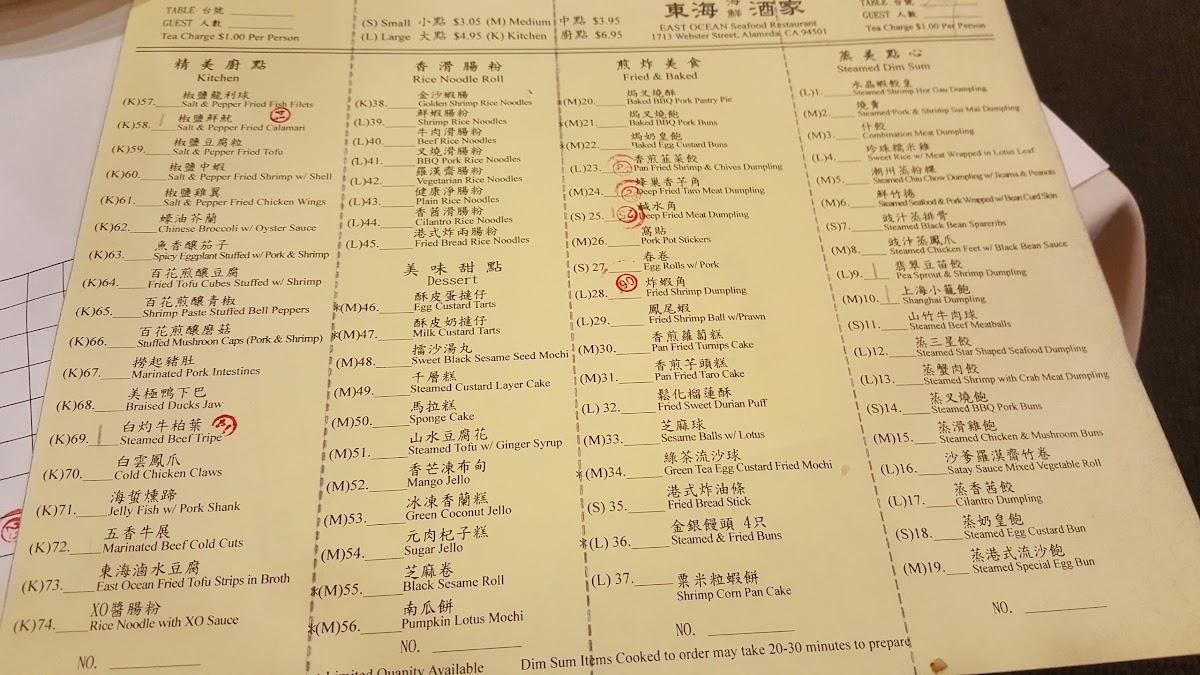 TABLE 台號
GUEST 人數
Tea Charge $1.00 Per Person
(S) Small 小點 $3.05 (M) Medium 中點 $3.95
(L) Large 大點 $4.95 (K) Kitchen 廚點 $6.95
東海海鮮酒家
EAST OCEAN Seafood Restaurant
1713 Webster Street, Alameda, CA 94501
TABLE 台號
GUEST 人數
Tea Charge $1.00 Per Person
精美廚點
Kitchen
椒鹽龍利球
(K)57. Salt & Pepper Fried Fish Filets
椒鹽鮮魷
(K)58. Salt & Pepper Fried Calamari
椒鹽豆腐粒
(K)59. Salt & Pepper Fried Tofu
椒鹽中蝦
(K)60. Salt & Pepper Fried Shrimp w/ Shell
椒鹽雞翼
(K)61. Salt & Pepper Fried Chicken Wings
蠔油芥蘭
(K)62. Chinese Broccoli w/ Oyster Sauce
魚香釀茄子
(K)63. Spicy Eggplant Stuffed w/ Pork & Shrimp
百花煎釀豆腐
(K)64. Fried Tofu Cubes Stuffed w/ Shrimp
百花煎釀青椒
(K)65. Shrimp Paste Stuffed Bell Peppers
百花煎釀磨菇
(K)66. Stuffed Mushroom Caps (Pork & Shrimp)
撈起豬肚
(K)67. Marinated Pork Intestines
美極鴨下巴
(K)68. Braised Ducks Jaw
白灼牛柏葉
(K)69. Steamed Beef Tripe
白雲鳳爪
(K)70. Cold Chicken Claws
海蜇燻蹄
(K)71. Jelly Fish w/ Pork Shank
五香牛展
(K)72. Marinated Beef Cold Cuts
東海滷水豆腐
(K)73. East Ocean Fried Tofu Strips in Broth
XO醬腸粉
(K)74. Rice Noodle with XO Sauce
NO.
香滑腸粉
Rice Noodle Roll
金沙蝦腸
(K)38. Golden Shrimp Rice Noodles
鮮蝦腸粉
(L)39. Shrimp Rice Noodles
牛肉滑腸粉
(L)40. Beef Rice Noodles
叉燒滑腸粉
(L)41. BBQ Pork Rice Noodles
羅漢齋腸粉
(L)42. Vegetarian Rice Noodles
健康淨腸粉
(L)43. Plain Rice Noodles
香茜滑腸粉
(L)44. Cilantro Rice Noodles
港式炸兩腸粉
(L)45. Fried Bread Rice Noodles
美味甜點
Dessert
酥皮蛋撻仔
*(M)46. Egg Custard Tarts
酥皮奶撻仔
*(M)47. Milk Custard Tarts
擂沙湯丸
(M)48. Sweet Black Sesame Seed Mochi
千層糕
(M)49. Steamed Custard Layer Cake
馬拉糕
(M)50. Sponge Cake
山水豆腐花
(M)51. Steamed Tofu w/ Ginger Syrup
香芒凍布甸
(M)52. Mango Jello
冰凍香蘭糕
(M)53. Green Coconut Jello
元肉杞子糕
(M)54. Sugar Jello
芝麻卷
*(M)55. Black Sesame Roll
南瓜餅
*(M)56. Pumpkin Lotus Mochi
NO.
煎炸美食
Fried & Baked
焗叉燒酥
*(M)20. Baked BBQ Pork Pastry Pie
焗叉燒飽
*(M)21. Baked BBQ Pork Buns
焗奶皇飽
*(M)22. Baked Egg Custard Buns
香煎韮菜餃
(L)23. Pan Fried Shrimp & Chives Dumpling
蜂巢香芋角
(M)24. Deep Fried Taro Meat Dumpling
鹹水角
(S) 25. Deep Fried Meat Dumpling
窩貼
(M)26. Pork Pot Stickers
春卷
(S) 27. Egg Rolls w/ Pork
炸蝦角
(L)28. Fried Shrimp Dumpling
鳳尾蝦
(L)29. Fried Shrimp Ball w/Prawn
香煎蘿蔔糕
(M)30. Pan Fried Turnips Cake
香煎芋頭糕
(M)31. Pan Fried Taro Cake
鬆化榴蓮酥
(L) 32. Fried Sweet Durian Puff
芝麻球
(M)33. Sesame Balls w/ Lotus
綠茶流沙球
*(M)34. Green Tea Egg Custard Fried Mochi
港式炸油條
(S) 35. Fried Bread Stick
金銀饅頭 4只
*(L) 36. Steamed & Fried Buns
粟米粒蝦餅
(L) 37. Shrimp Corn Pan Cake
NO.
蒸美點心
Steamed Dim Sum
水晶蝦餃皇
(L)1. Steamed Shrimp Har Gau Dumpling
燒賣
(M)2. Steamed Pork & Shrimp Sui Mai Dumpling
什餃
(M)3. Combination Meat Dumpling
珍珠糯米雞
(L)4. Sweet Rice w/ Meat Wrapped in Lotus Leaf
潮州蒸粉粿
(M)5. Steamed Chiu Chow Dumpling w/ Jicama & Peanuts
鮮竹捲
(M)6. Steamed Seafood & Pork Wrapped w/ Bean Curd Skin
豉汁蒸排骨
(S)7. Steamed Black Bean Spareribs
豉汁蒸鳳爪
(M)8. Steamed Chicken Feet w/ Black Bean Sauce
翡翠豆苗餃
(L)9. Pea Sprout & Shrimp Dumpling
上海小籠飽
(M)10. Shanghai Dumpling
山竹牛肉球
(S)11. Steamed Beef Meatballs
蒸三星餃
(L)12. Steamed Star Shaped Seafood Dumpling
蒸蟹肉餃
(L)13. Steamed Shrimp with Crab Meat Dumpling
蒸叉燒飽
(S)14. Steamed BBQ Pork Buns
蒸滑雞飽
(M)15. Steamed Chicken & Mushroom Buns
沙爹羅漢齋竹卷
(L)16. Satay Sauce Mixed Vegetable Roll
蒸香茜餃
(L)17. Cilantro Dumpling
蒸奶皇飽
(S)18. Steamed Egg Custard Bun
蒸港式流沙飽
(M)19. Steamed Special Egg Bun
NO.
Limited Quanity Available
Dim Sum Items Cooked to order may take 20-30 minutes to prepare